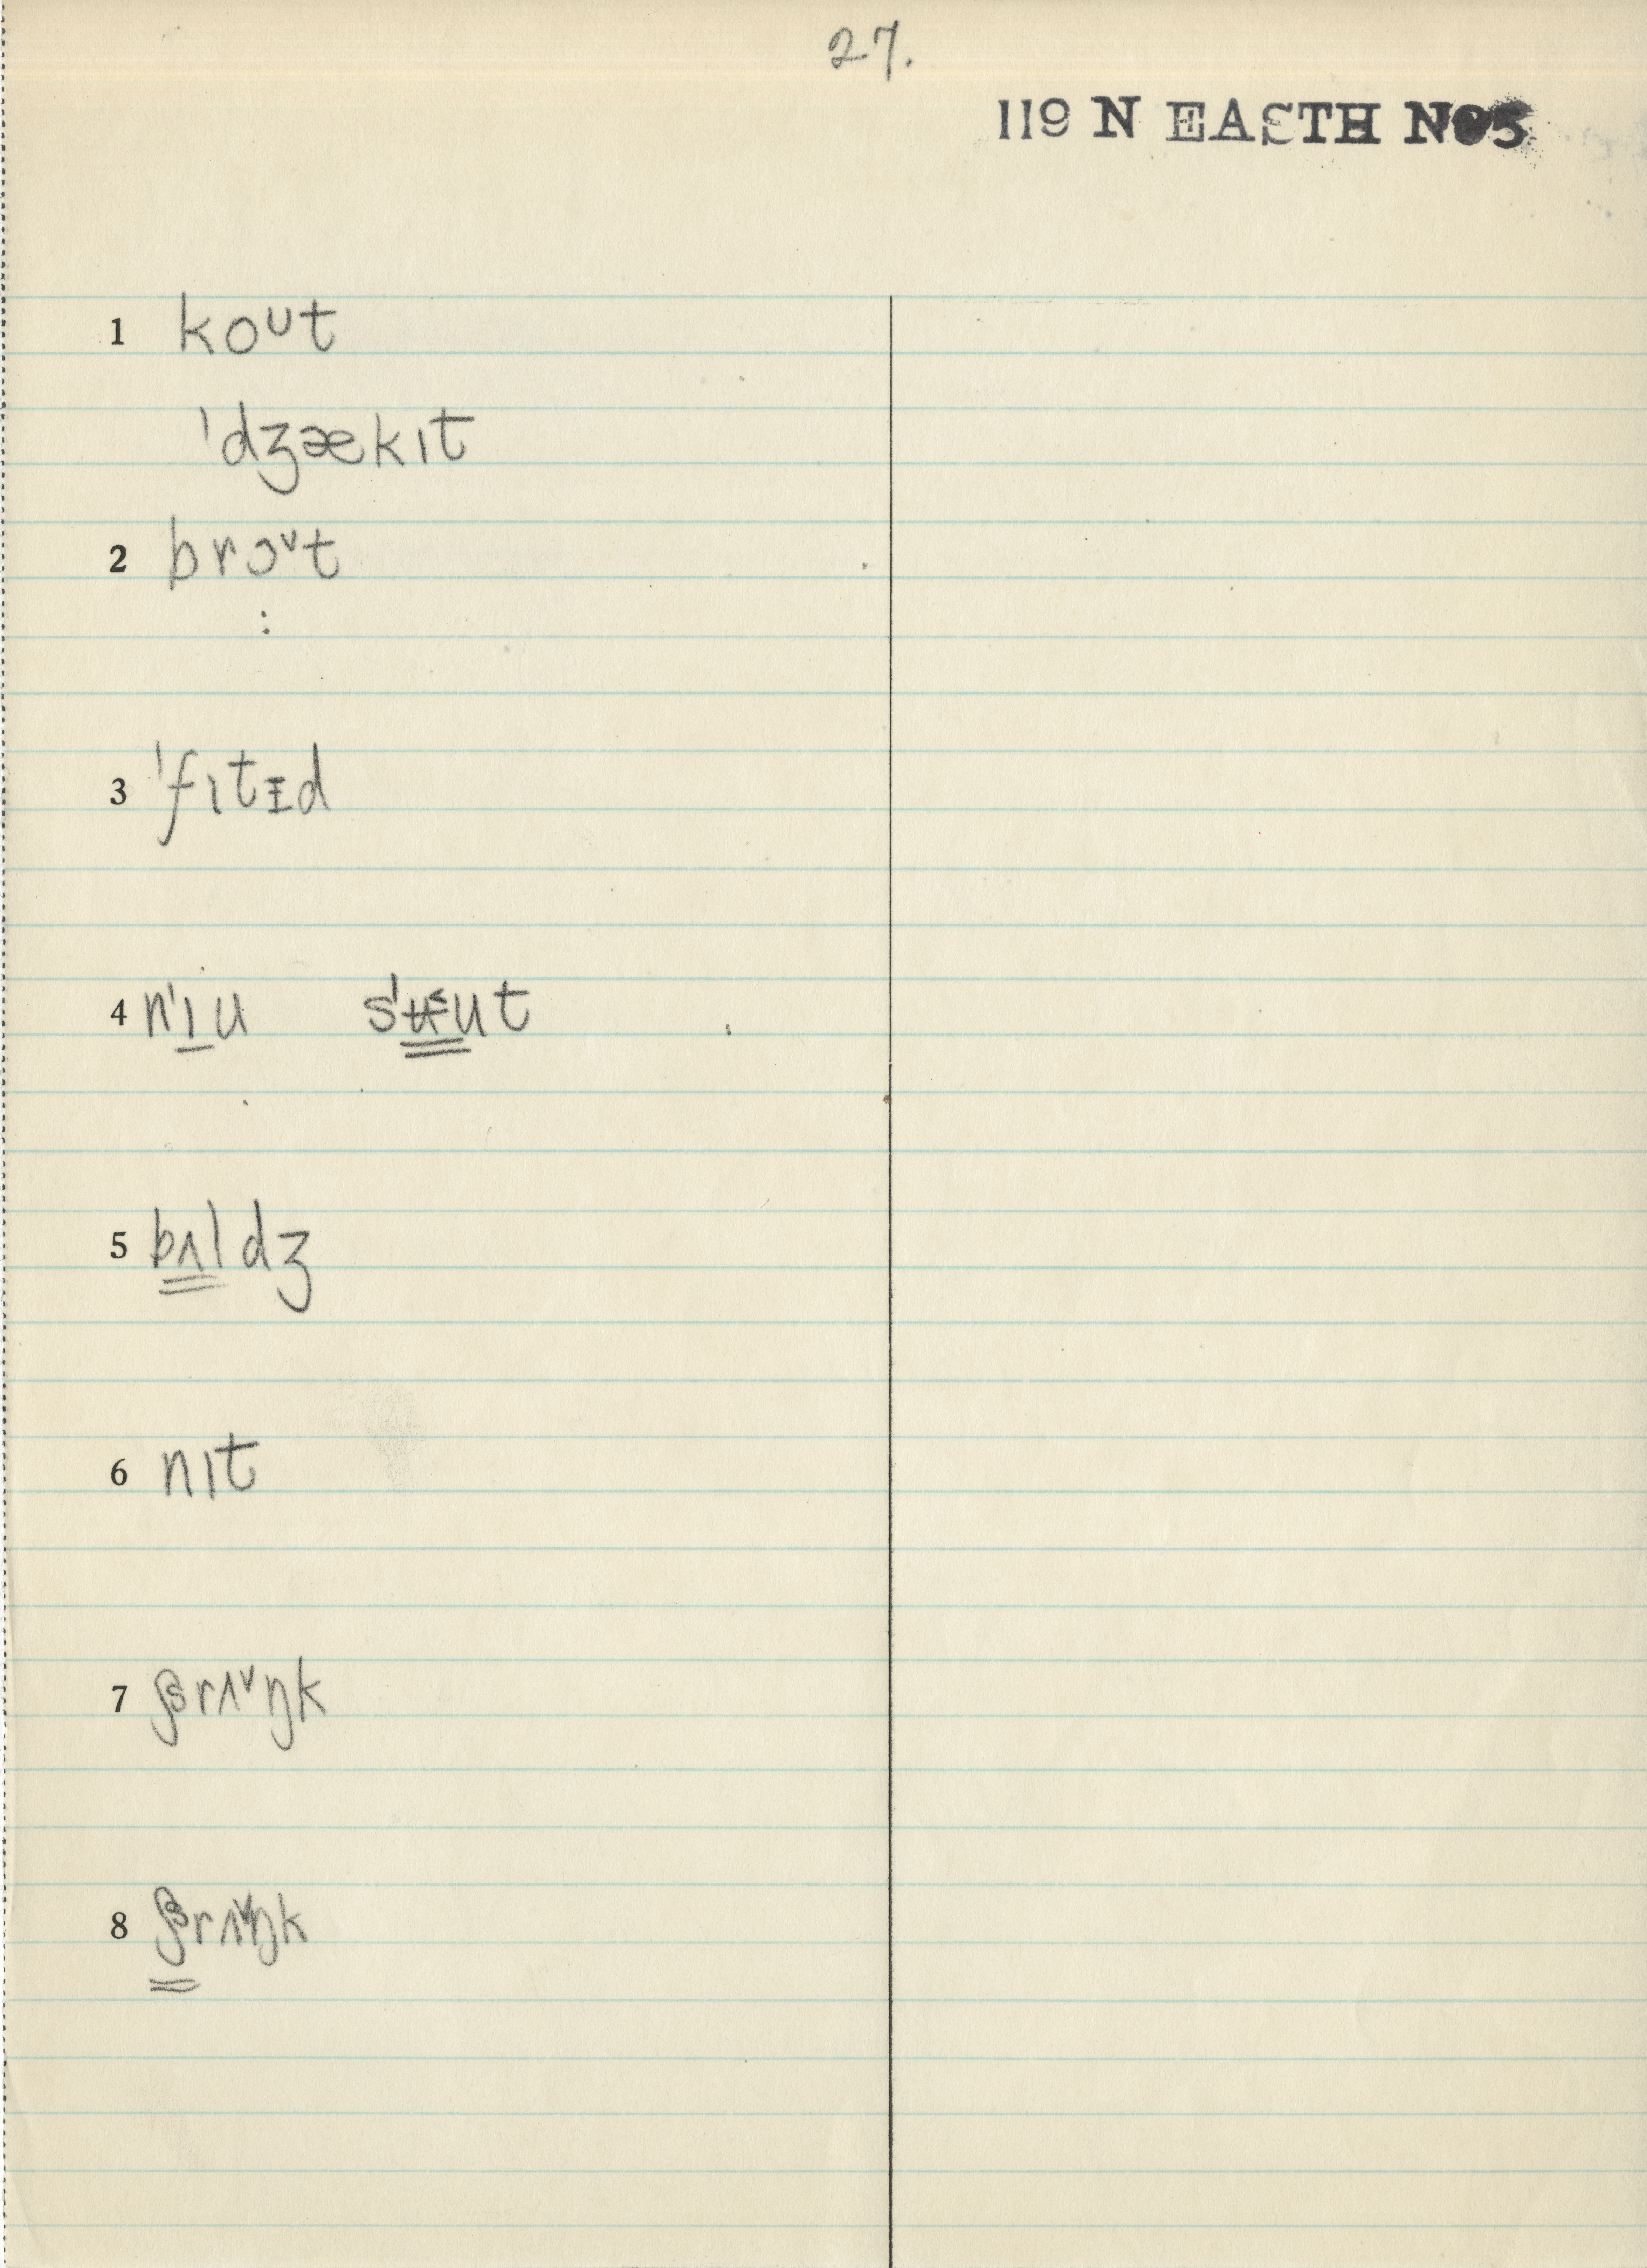 27.
119 N EASTH NO5
1 koᴜt
ˈdʒækɪt
2 brɔˇt
:
3 ˈfɪtɪ̵d
4 nˈɪu sˈʉ˂ut
5 bʌldʒ
6 nɪt
7 rʌˇŋk
8 rʌˇŋk